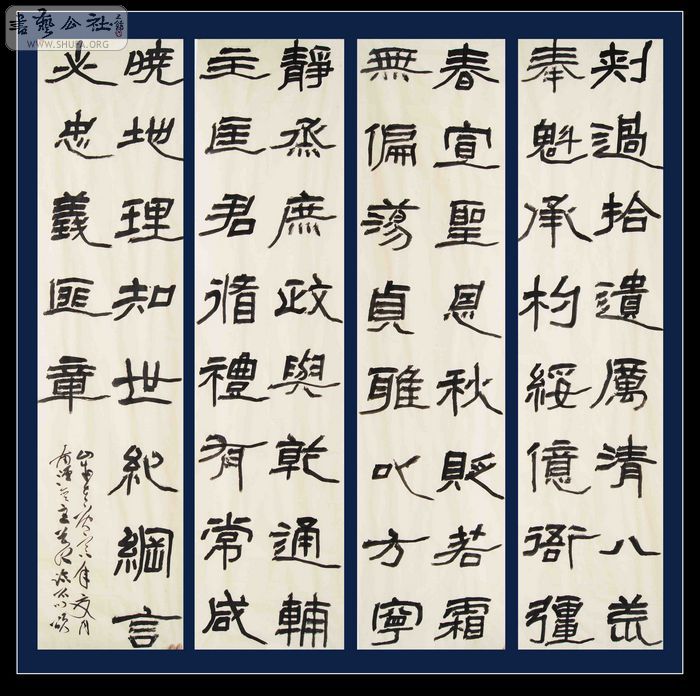 書藝公社
WWW.SHUFA.ORG
刺過拾遺厲清八荒
奉魁承杓綏億衙彊
春宣聖恩秋貶若霜
無偏蕩貞雅以方寧
靜烝庶政與乾通輔
主匡君循禮有常咸
曉地理知世紀綱言
必忠義匪章